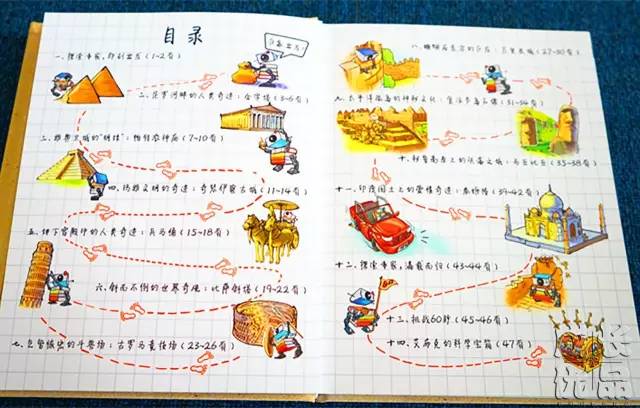 目录
一、探索专家,即刻出发(1-2页)
出发!
二、尼罗河畔的人类奇迹:金字塔(3-6页)
三、雅典卫城的"明珠":帕特农神庙(7-10页)
四、玛雅文明的奇迹:奇琴伊察古城(11-14页)
五、地下宫殿中的人类奇迹:兵马俑(15-18页)
六、斜而不倒的世界奇观:比萨斜塔(19-22页)
七、的斗兽场:古罗马竞技场(23-26页)
八、东方的巨龙:万里长城(27-30页)
九、太平洋孤岛的神秘文化:复活节岛石像(31-34页)
十、秘鲁高原上的失落之城:马丘比丘(35-38页)
十一、印度国土上的爱情奇迹:泰姬陵(39-42页)
十二、探索专家,满载而归(43-44页)
十三、挑战60秒(45-46页)
十四、艾布克的科学宝箱(47页)
优品